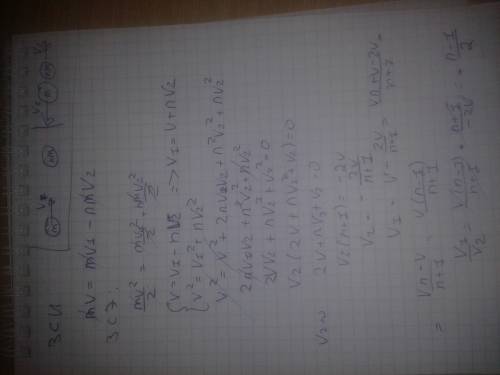 ЗСИ
mv = mv₁ - nmv₂
ЗСЭ:
mv²/2 = mv₁²/2 + nmv₂²/2
{ v = v₁ - nv₂ => v₁ = v + nv₂
{ v² = v₁² + nv₂²
v² = v² + 2nv₂v + n²v₂² + nv₂²
2nv₂v + n²v₂² + nv₂²
2vv₂ + nv₂² + v₂² = 0
v₂(2v + nv₂ + v₂) = 0
2v + nv₂ + v₂ = 0
v₂(n+1) = -2v
v₂ = - 2v/(n+1)
v₁ = v - 2v/(n+1) = (vn+v-2v)/(n+1) =
= (vn-v)/(n+1) = v(n-1)/(n+1)
v₁/v₂ = v(n-1)/(n+1) * (n+1)/(-2v) = + (n-1)/2